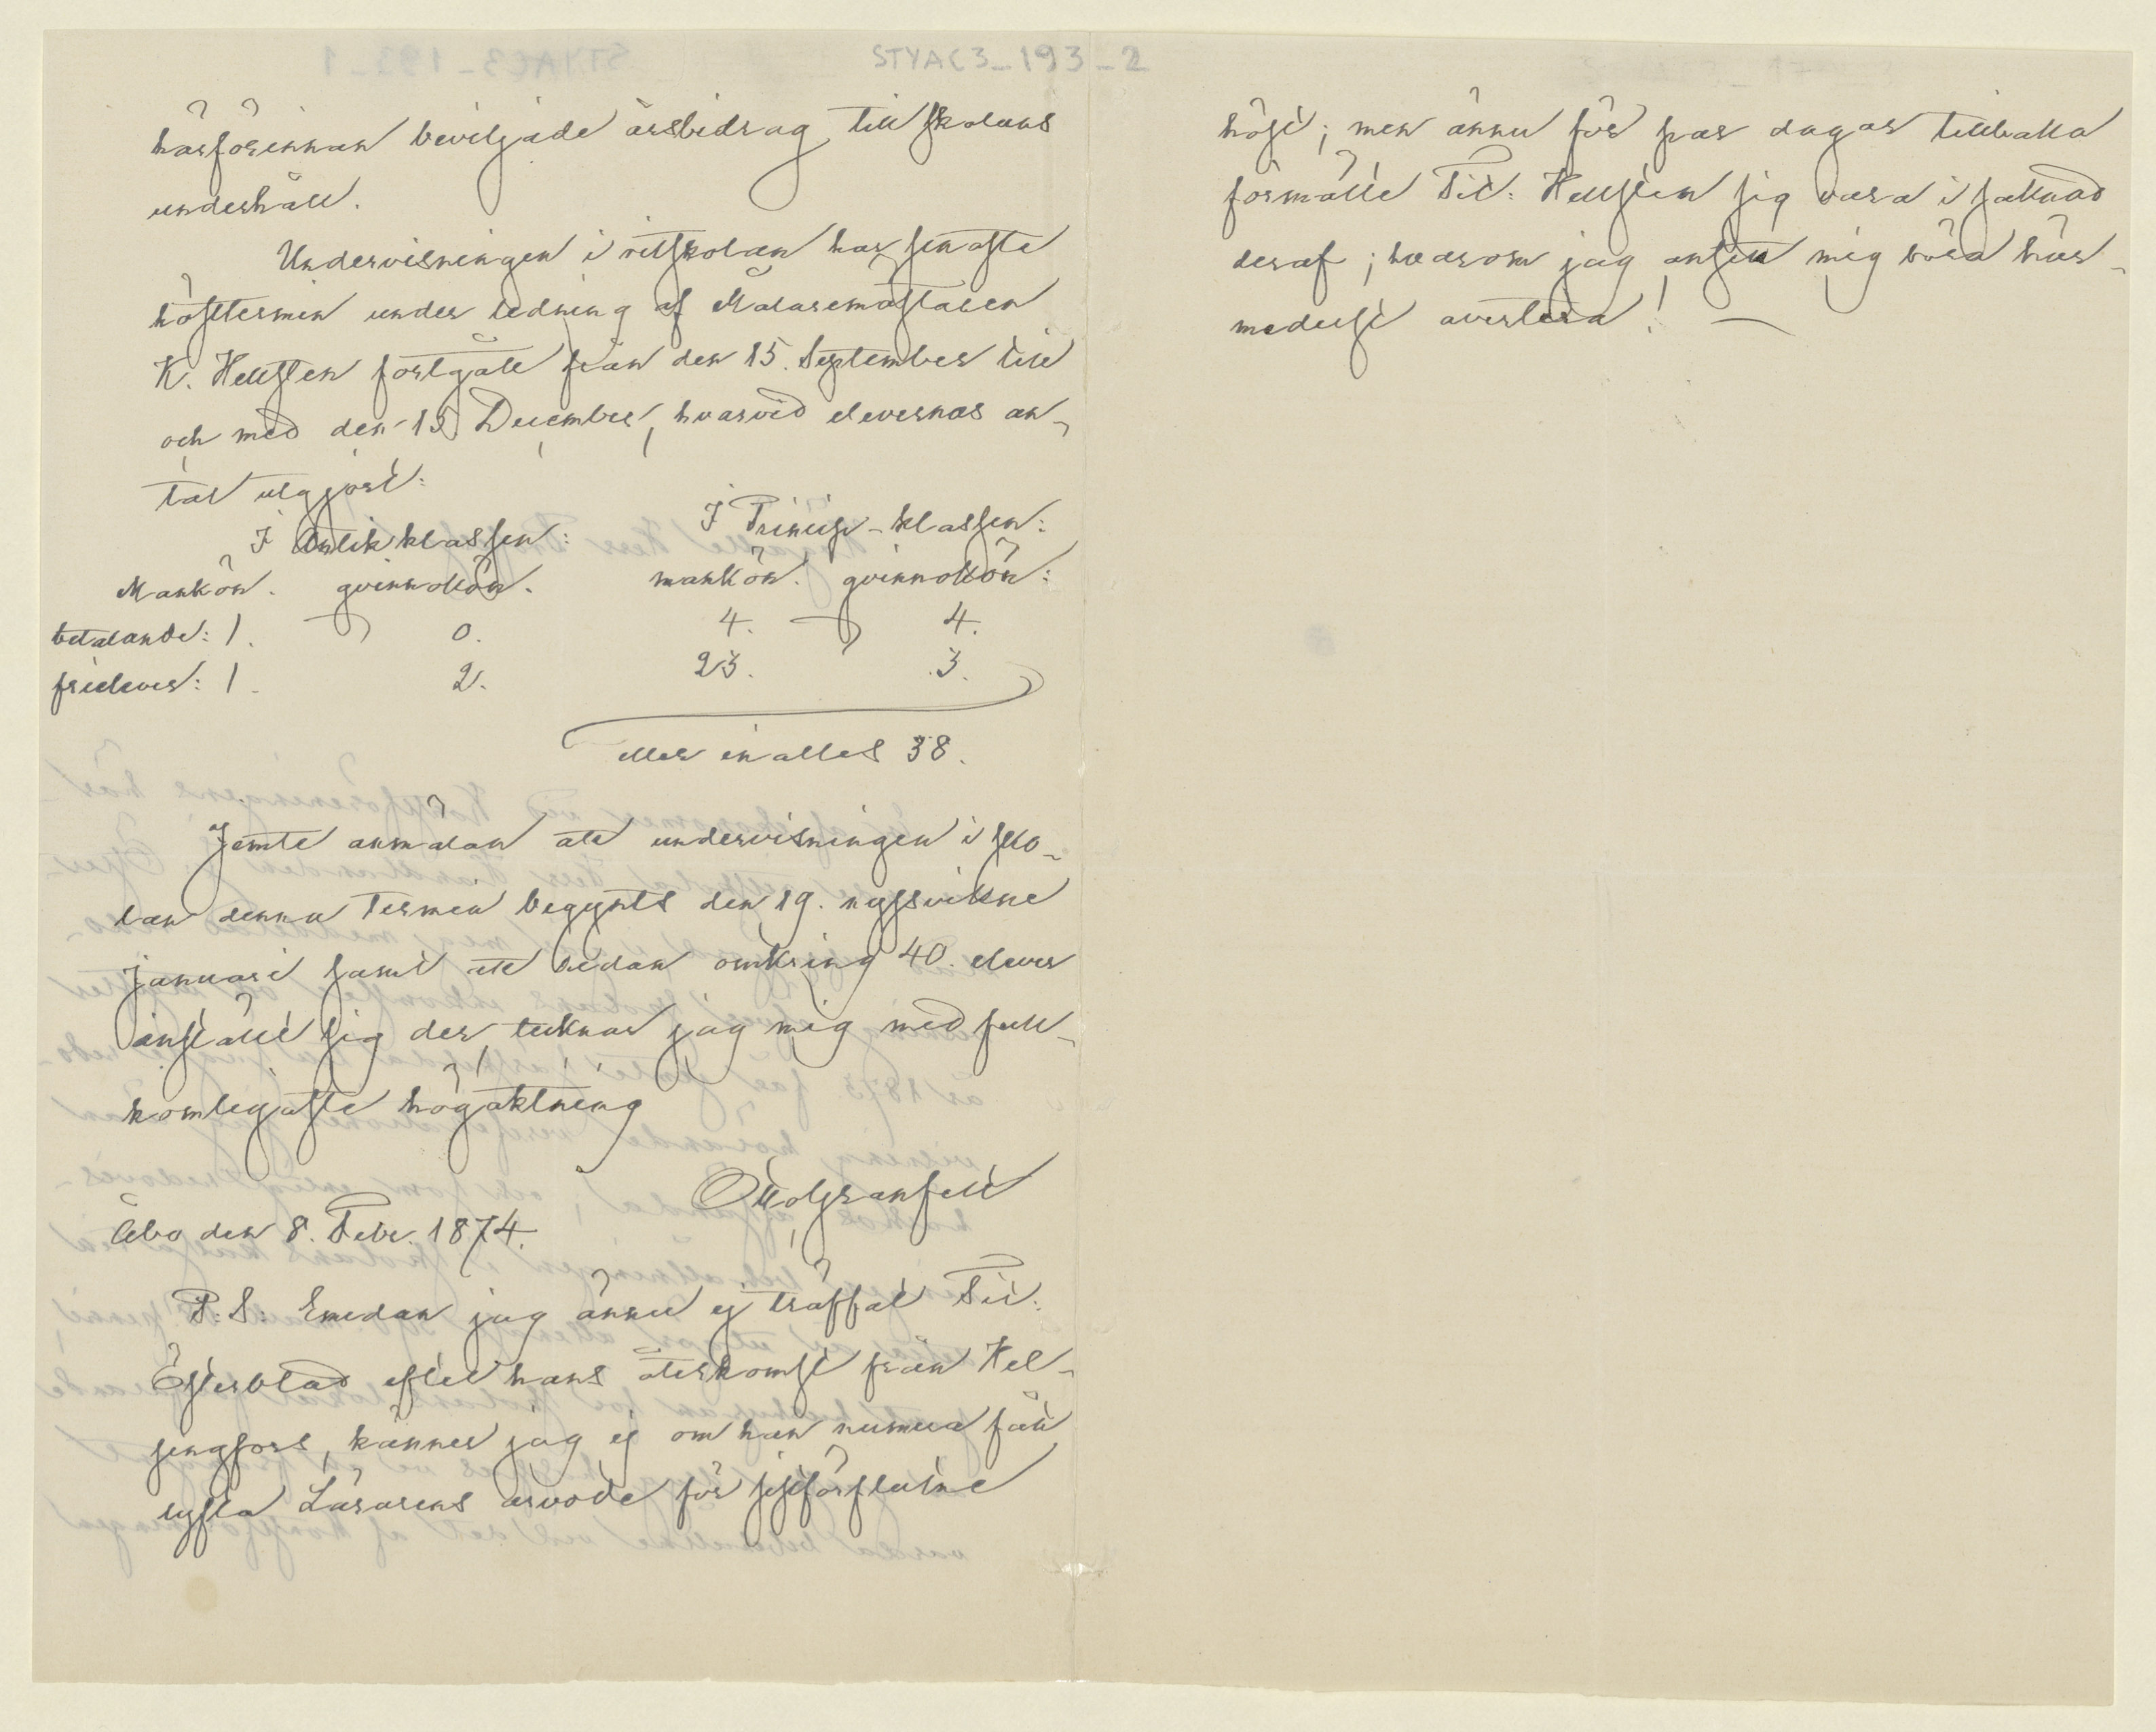 STYAC3_193_2
härförinnan beviljade årsbidrag till skolans
underhåll.
Undervisningen i ritskolan har senaste
hösttermin under ledning af Målaremästaren
K. Hellsten fortgått från den 15. September till
och med den 15 December, hvarvid elevernas an-
tal utgjort:
I Antik klassen:
I Princip-klassen:
Mankön. qvinnokön.
mankön. qvinnokön:
betalande: 1. 0. 4. 4.
frielever: 1. 2. 23. 3.
eller in alles 38.
Jemte anmälan att undervisningen i sko-
lan denna termin begynts den 19. nyssvikne
januari samt att redan omkring 40. elever
inställt sig der, tecknar jag mig med full-
komligaste högaktning
Åbo den 8. Febr. 1874.
P.S. Emedan jag ännu ej träffat Tit:
Österblad efter hans återkomst från Hel-
singfors, känner jag ej om han numera fått
lyfta Lärarens arvode för sistförflutne
höst; men ännu för par dagar tillbaka
förmälte Tit: Hellsten sig vara i saknad
deraf; hvarom jag ansett mig böra här-
medelst avertera!